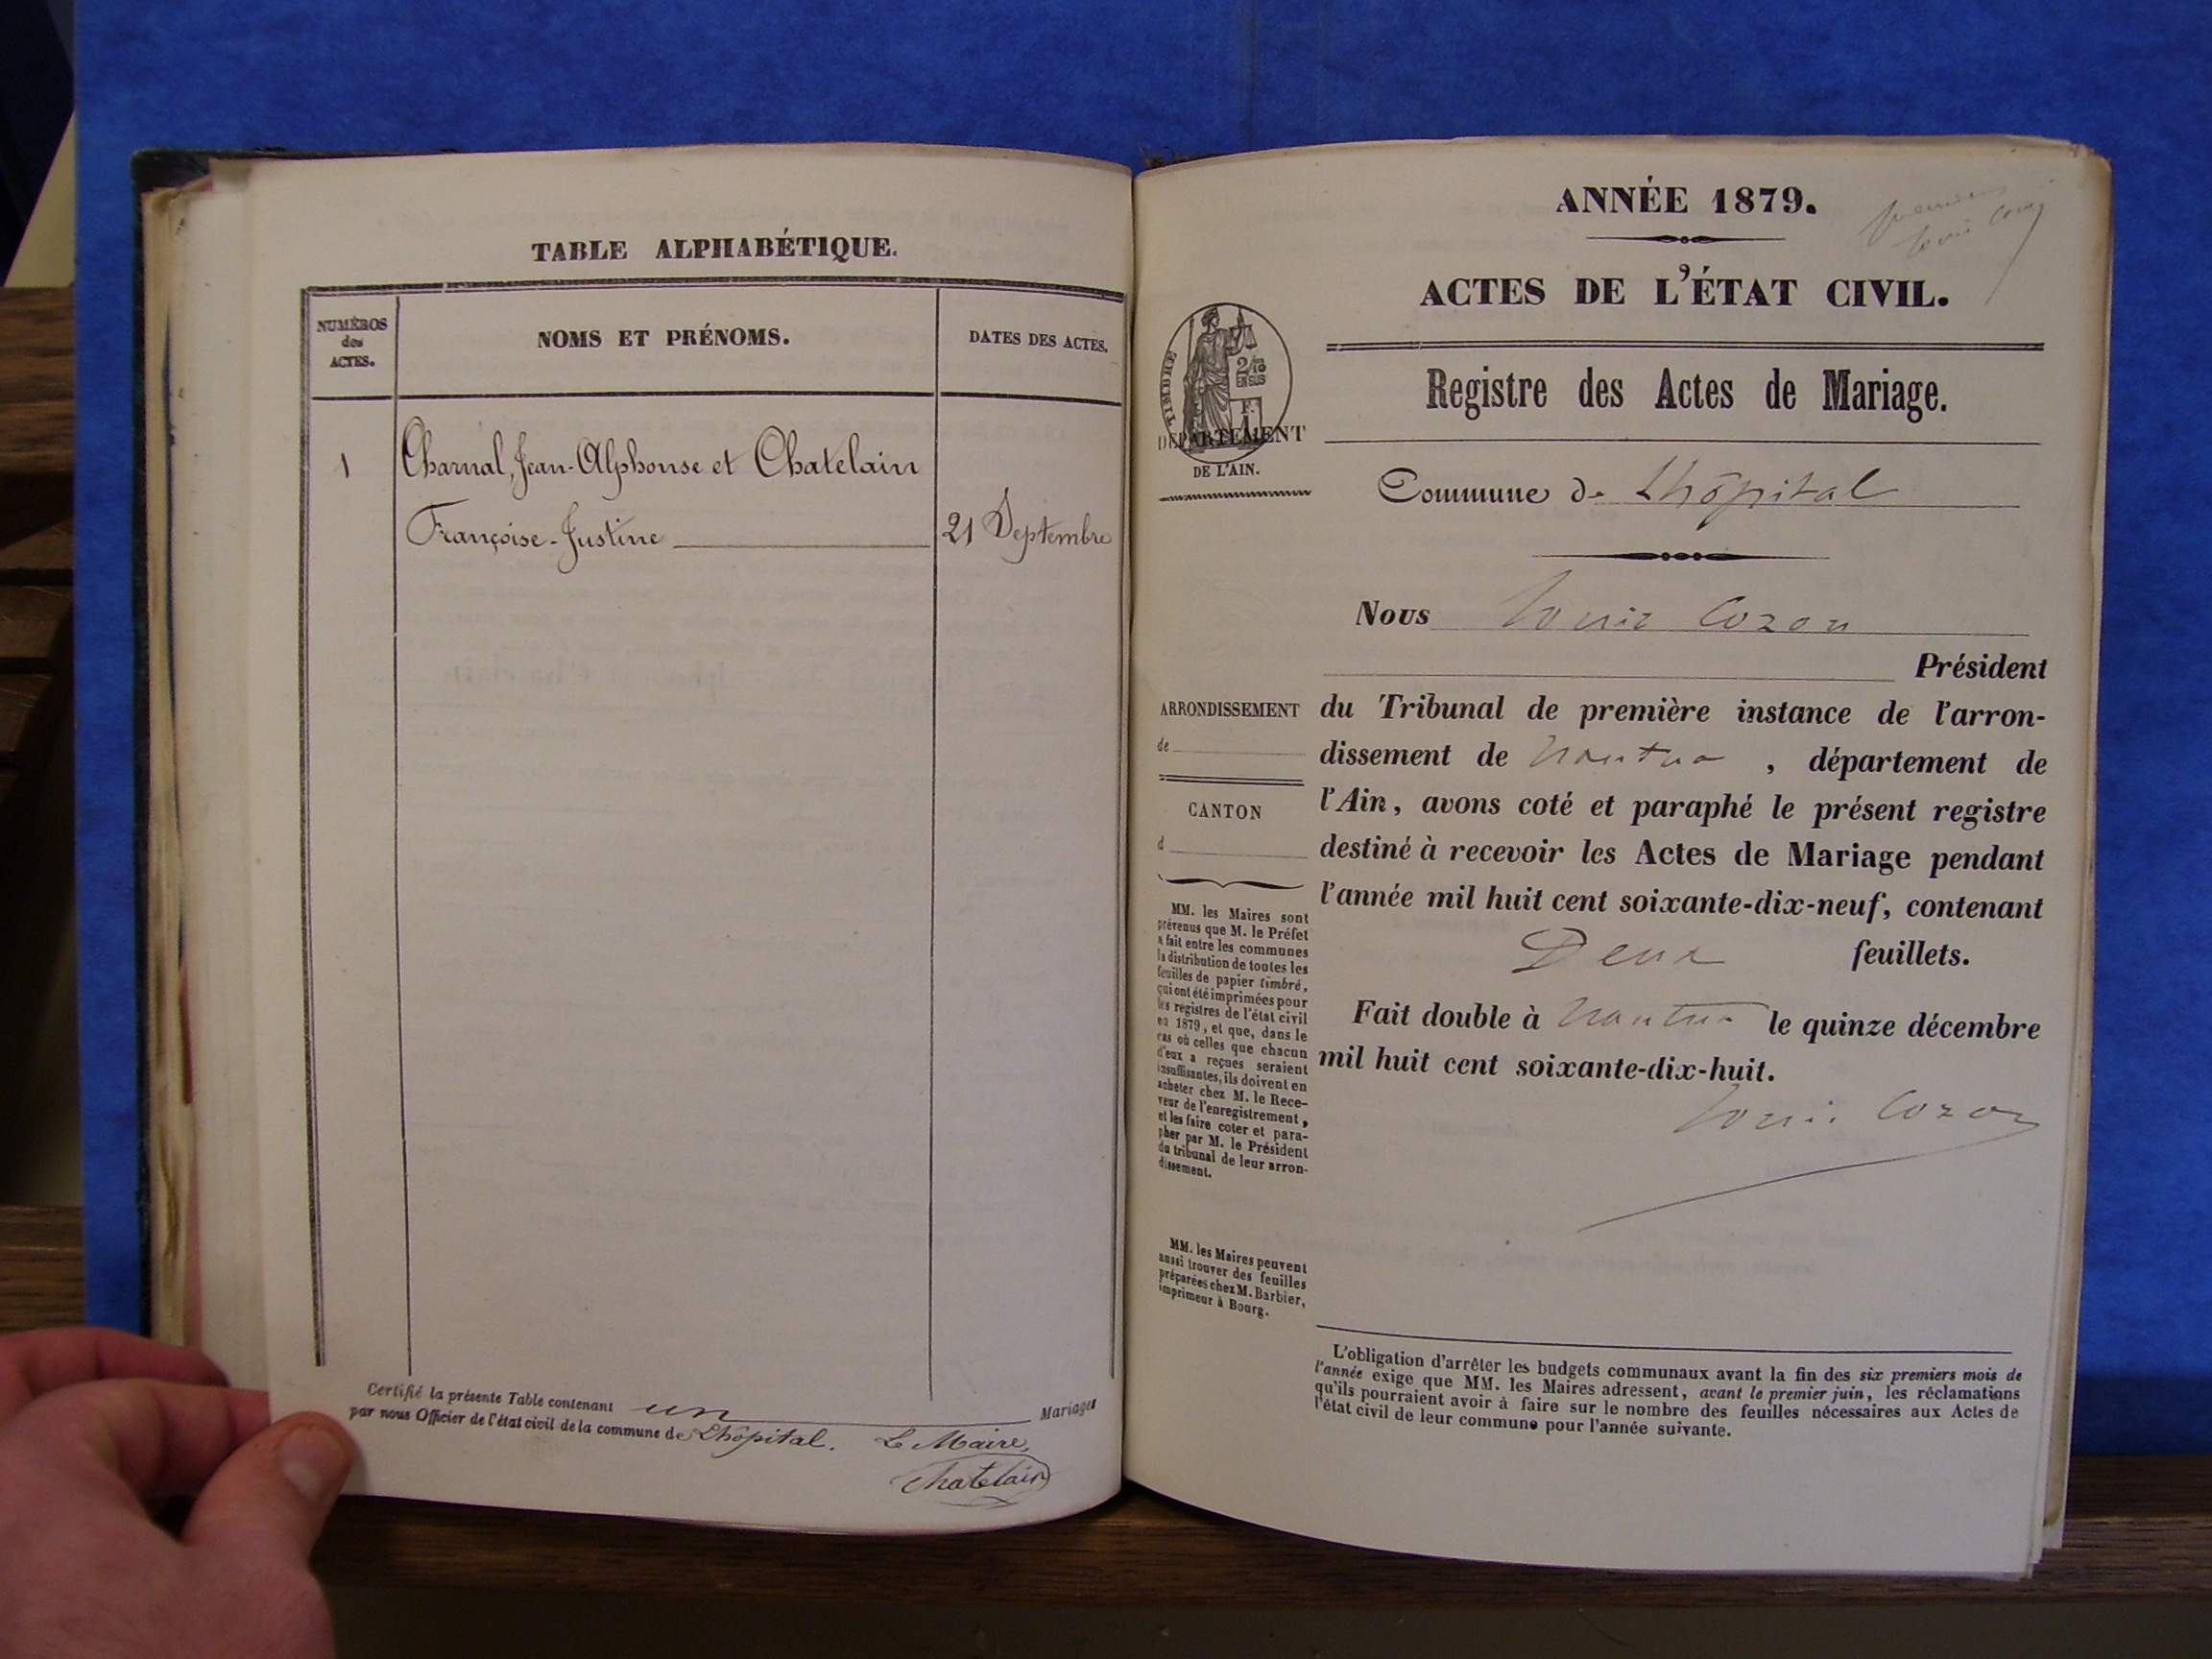 TABLE ALPHABÉTIQUE.
NUMÉROS
des
ACTES.
NOMS ET PRÉNOMS.
DATES DES ACTES.
1
Charnal, Jean-Alphonse et Chatelain
Françoise-Justine
21 Septembre
Certifié la présente Table contenant un Mariages
par nous Officier de l'état civil de la commune de Lhôpital. Le Maire,
Chatelain
ANNÉE 1879.
premier
Louis Coz
ACTES DE L'ÉTAT CIVIL.
TIMBRE
2/10
EN SUS
F.
1
DÉPARTEMENT
DE L'AIN.
Registre des Actes de Mariage.
Commune de Lhôpital
Nous Louis Cozon
Président
du Tribunal de première instance de l'arron-
dissement de Nantua, département de
l'Ain, avons coté et paraphé le présent registre
destiné à recevoir les Actes de Mariage pendant
l'année mil huit cent soixante-dix-neuf, contenant
Deux feuillets.
Fait double à Nantua le quinze décembre
mil huit cent soixante-dix-huit.
Louis Cozon
ARRONDISSEMENT
de
CANTON
d
MM. les Maires sont
prévenus que M. le Préfet
a fait entre les communes
la distribution de toutes les
feuilles de papier timbré,
qui ont été imprimées pour
les registres de l'état civil
en 1879, et que, dans le
cas où celles que chacun
d'eux a reçues seraient
insuffisantes, ils doivent en
acheter chez M. le Rece-
veur de l'enregistrement,
et les faire coter et para-
pher par M. le Président
du tribunal de leur arron-
dissement.
MM. les Maires peuvent
aussi trouver des feuilles
préparées chez M. Barbier,
imprimeur à Bourg.
L'obligation d'arrêter les budgets communaux avant la fin des six premiers mois de
l'année exige que MM. les Maires adressent, avant le premier juin, les réclamations
qu'ils pourraient avoir à faire sur le nombre des feuilles nécessaires aux Actes de
l'état civil de leur commune pour l'année suivante.